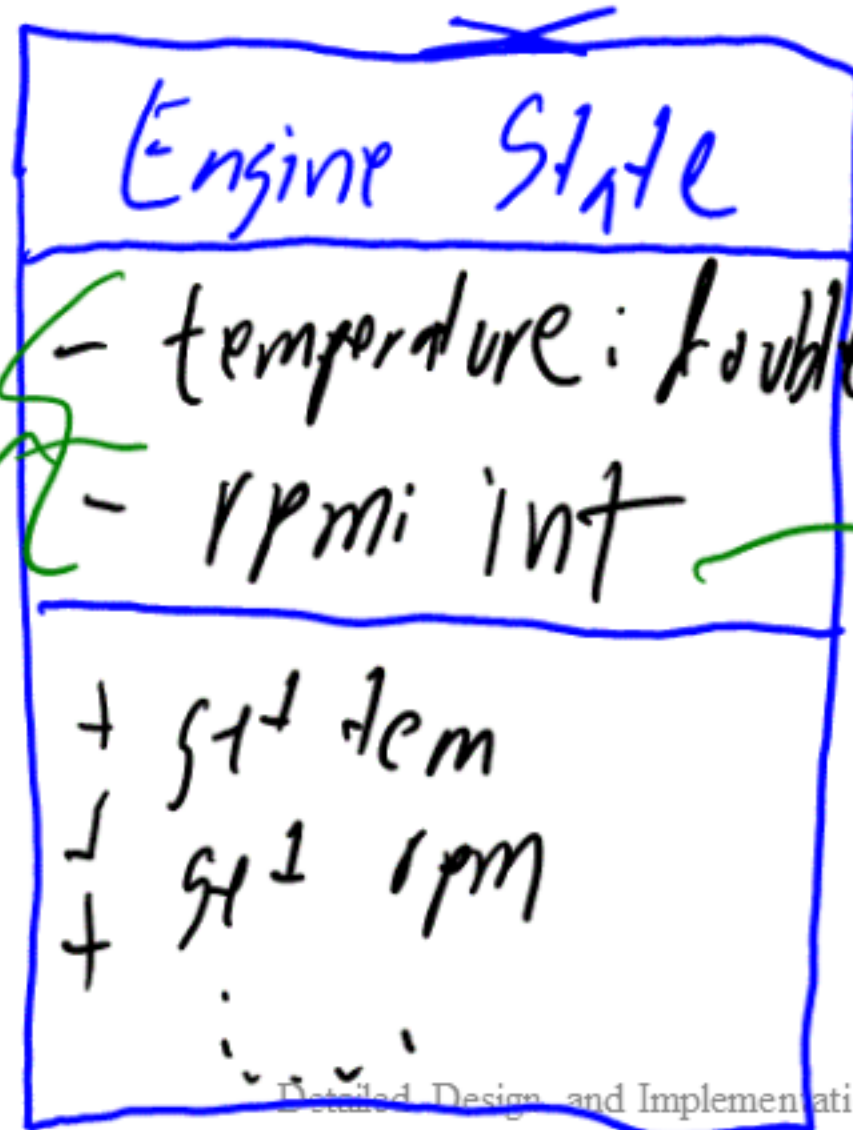 Engine State
- temperature: double
- rpm: int
+ get tem
+ get rpm
+
Detailed Design and Implementati